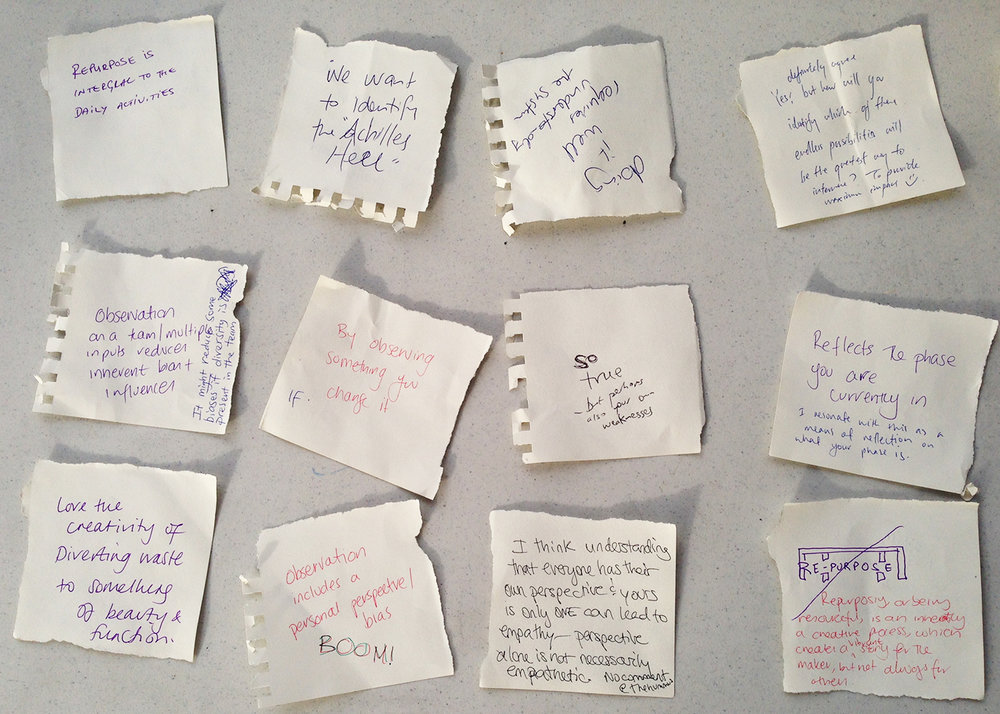 REPURPOSE IS
INTERGRAL TO THE
DAILY ACTIVITIES
We want
to Identify
the "Achilles
Heel"
doing
it well
requires
understanding
the system
definitely agree
Yes! but how will you
identify which of these
endless possibilities will
be the greatest way to
intervene? To provide
maximum impact
Observation
on a team/multiple
inputs reduces
inherent biant
influences
It might reduce some
biases if diversity is
present in the team
By observing
something you
IF. change it
So
true
- but perhaps
also your own
weaknesses
Reflects the phase
you are
currently in
I resonate with this as a
means of reflection on
what your phase is.
Love the
creativity of
Diverting waste
to something
of beauty &
function.
Observation
includes a
personal perspective/
bias
BOOM!
I think understanding
that everyone has their
own perspective & yours
is only ONE can lead to
empathy — perspective
alone is not necessarily
empathetic. No comment
RE-PURPOSE
Repurposing, or being
resourceful, is an inherently
a creative process, which
creates a vibrant story for the
maker, but not always for
others